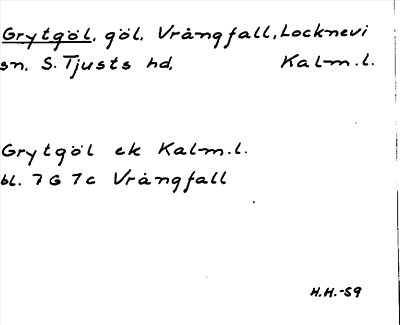 Grytgöl, göl, Vrångfall, Locknevi
sn, S. Tjusts hd, Kalm.l.
Grytgöl ek Kalm.l.
bl. 7 G 7 c Vrångfall
H.H.-59